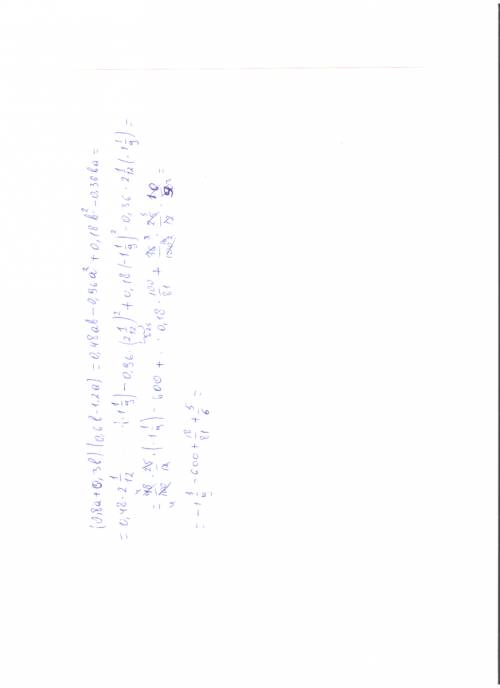 (0,8a+0,3b)(0,6b-1.2a) = 0,48ab-0,96a² + 0,18b² -0.36ba =
= 0,48·2 1/12 ·(-1 1/9) - 0,96·(2 1/12)² + 0,18(-1 1/9)² - 0,36 · 2 1/12 (-1 1/9) =
= 48/100 · 25/12 · (-1 1/9) - 600 + ... 0,18 · 100/81 + 36/100 · 25/12 · 10/9 =
= -1 1/9 - 600 + 18/81 + 5/6 =